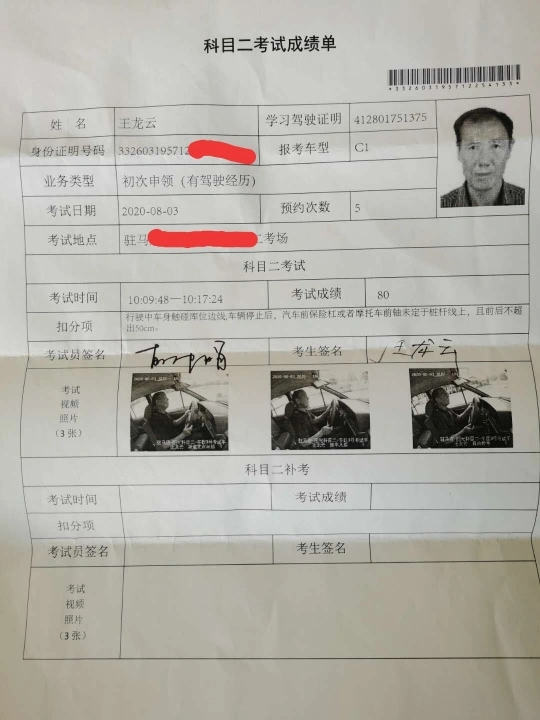 科目二考试成绩单
*3326031957122541
姓 名 王龙云 学习驾驶证明 412801751375
身份证明号码 33260319571 报考车型 C1
业务类型 初次申领（有驾驶经历）
考试日期 2020-08-03 预约次数 5
考试地点 驻马 二考场
科目二考试
考试时间 10:09:48—10:17:24 考试成绩 80
扣分项 行驶中车身触碰库位边线,车辆停止后，汽车前保险杠或者摩托车前轴未定于桩杆线上，且前后不超
出50cm。
考试员签名 考生签名 王龙云
考试
视频
照片
（3 张）
科目二补考
考试时间 考试成绩
扣分项
考试员签名 考生签名
考试
视频
照片
（3 张）